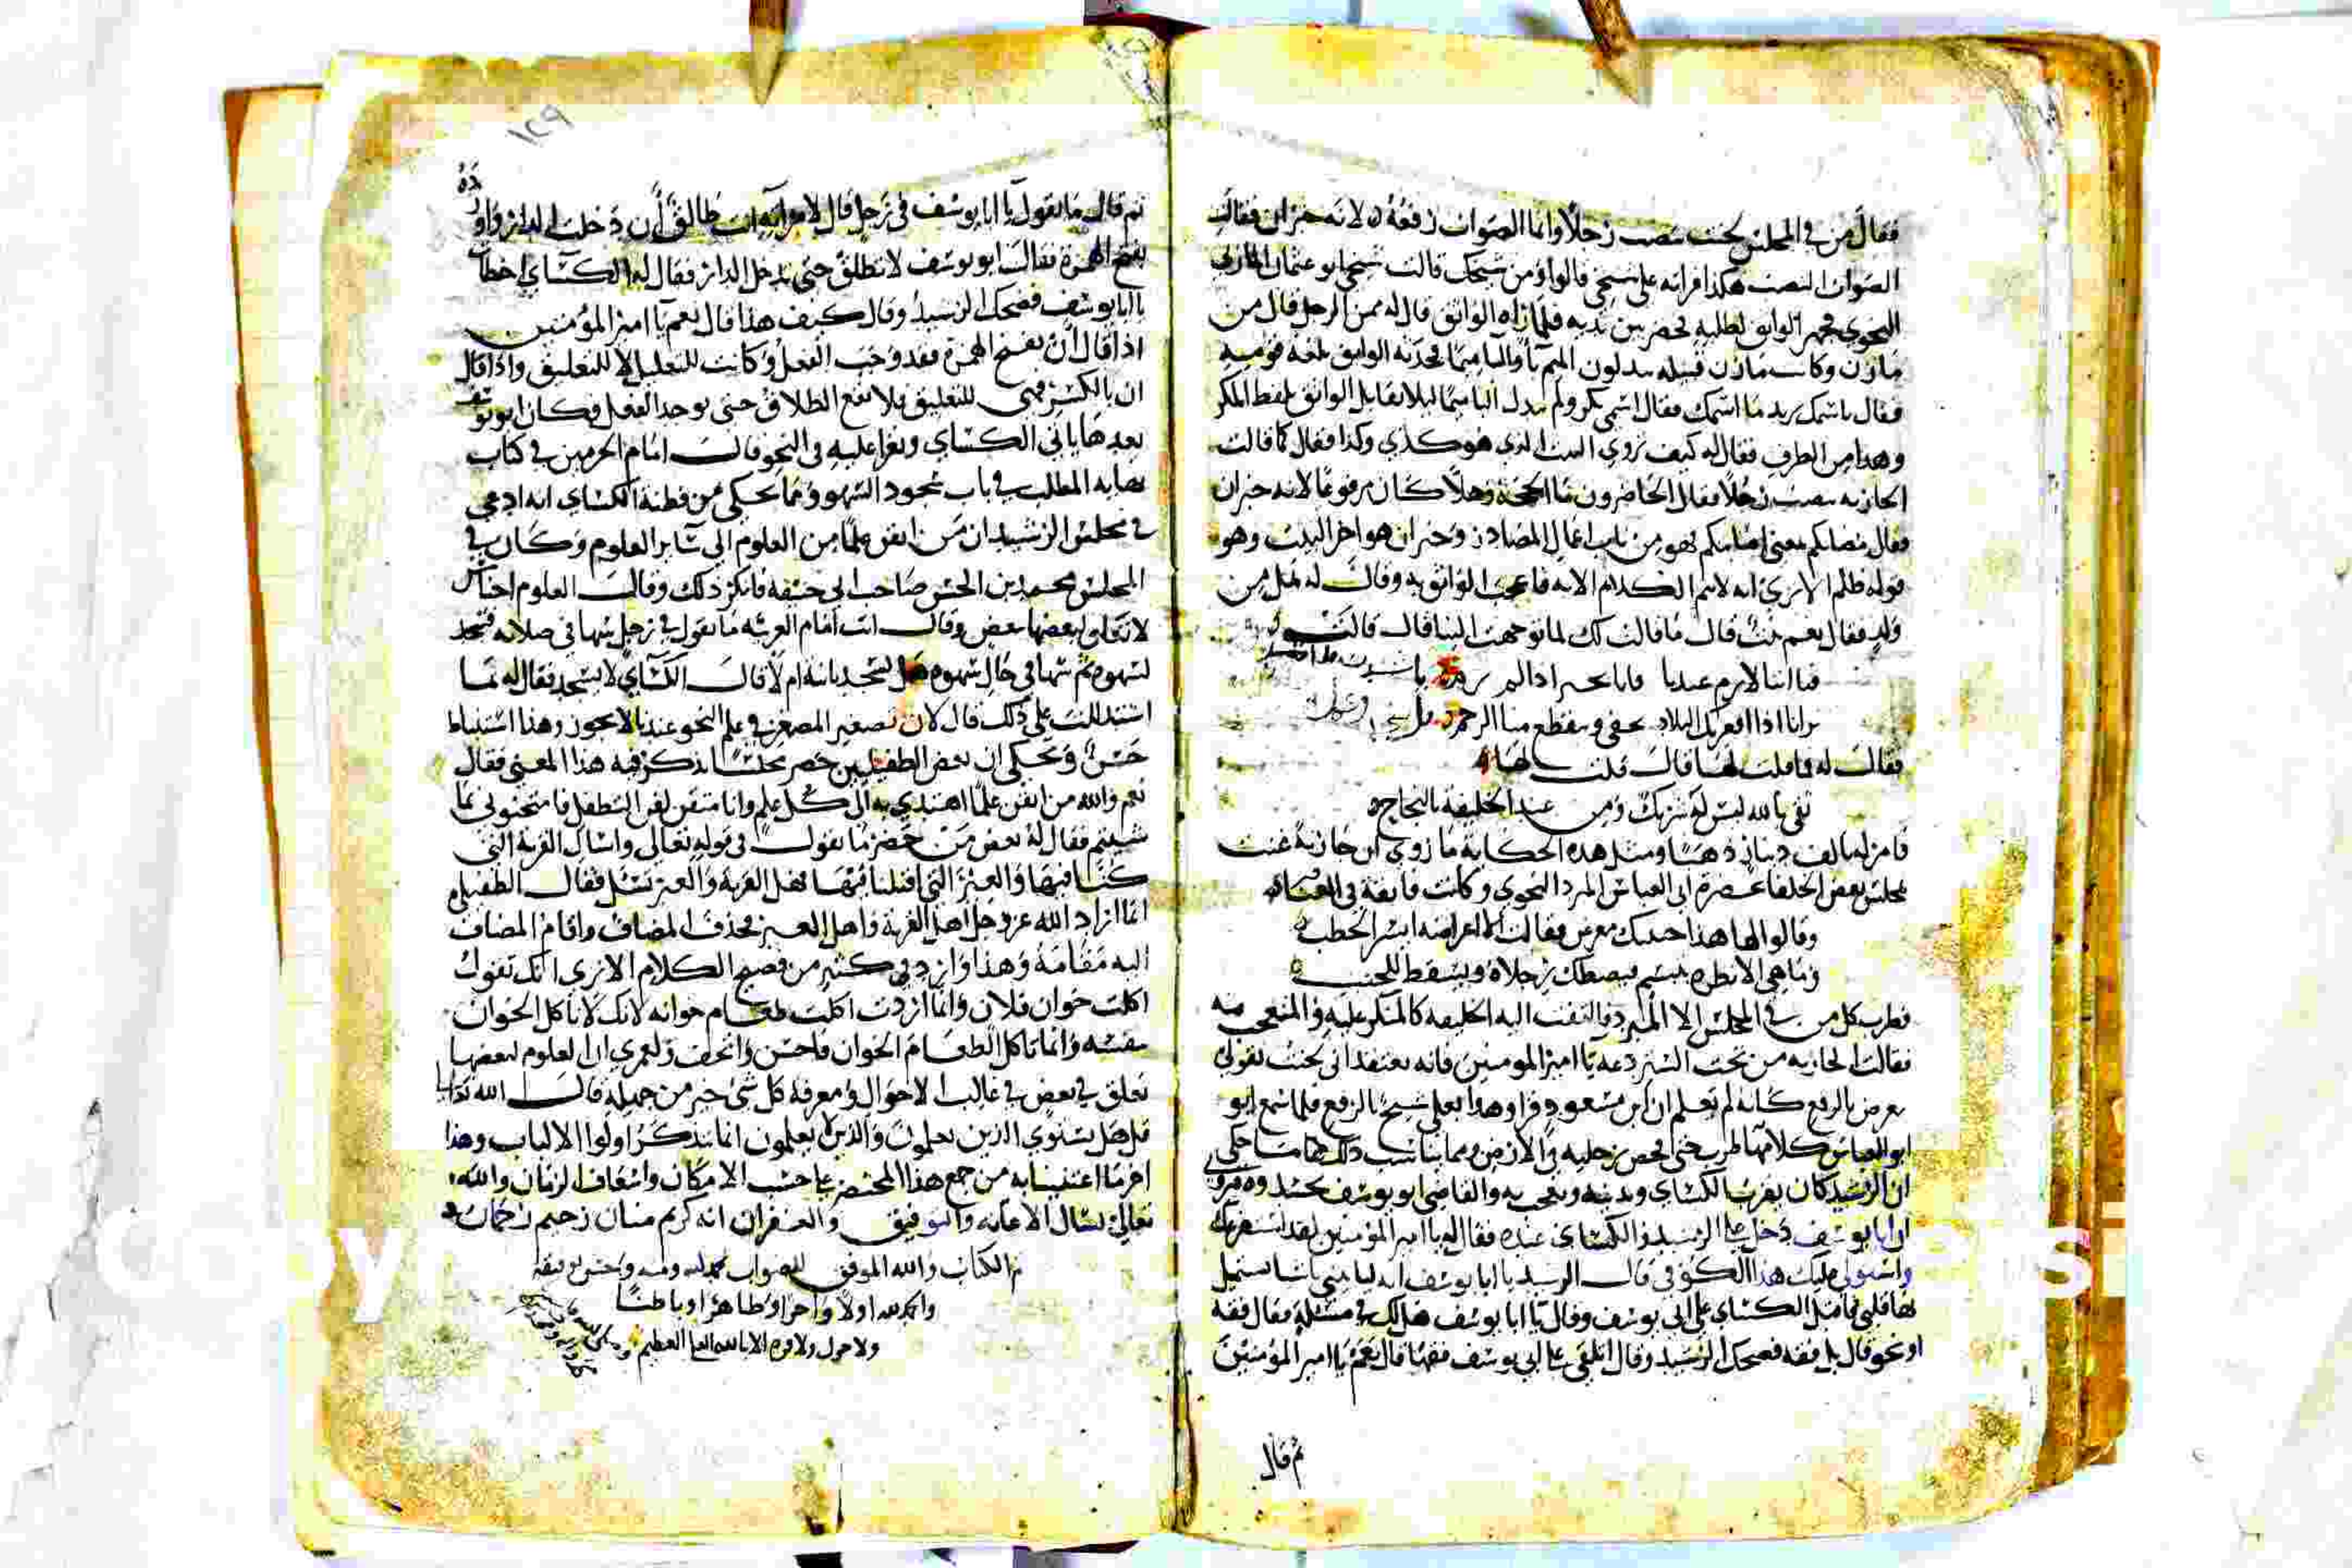 فقال من في المجلس لحنت بنصب رجلا وانما الصواب رفعه لانه خبر ان فقالت
الصواب النصب هكذا قراته على شيخي قالوا ومن شيخك قالت شيخي ابو عثمان المازني
النحوي فجهز الواثق لطلبه فحضر بين يديه فلما راه الواثق قال له ممن الرجل قال من
مازن وكانت مازن قبيلة يبدلون الميم با والبا ميما فحدثه الواثق بلغة قومه
فقال باسمك يريد ما اسمك فقال اسمي بكر ولم يبدل البا ميما ليلا يقابل الواثق بلفظ المكر
وهذا من الظرف فقال له كيف تروي البيت الذي هو كذي وكذا فقال كما قالت
الجاريه بنصب رجلا فقال الحاضرون ما الحجة وهلا كان مرفوعا لانه خبر ان
فقال مصابكم بمعنى اصابتكم فهو من باب اعمال المصادر وخبر ان هو اخر البيت وهو
قوله ظلم الا ترى انه لا يتم الكلام الا به فاعجب الواثق به وقال له هل من
ولد فقال نعم بنت قال ما قالت لك لما توجهت الينا قال قالت
فيا ابتا لا ترم عندنا فانا بخير اذا لم ترم
ترانا اذا اضمرتك البلاد نجفى ويقطع منا الرحم
فقال له ما قلت لها قال قلت لها
ثقي بالله ليس له شريك ومن عند الخليفة بالنجاح
فامر له بالف دينار ذهبا ومثل هذه الحكاية ما روي ان جارية غنت
بمجلس بعض الخلفا بحضرة ابي العباس المبرد النحوي وكانت فايقة في الغناء
وقالوا لها هذا حبيبك معرض فقالت الا اعراضه ايسر الخطب
وما هي الا نظره بتبسم فتصطك رجلاه ويسقط للجنب
فطرب كل من في المجلس الا المبرد فالتفت اليه الخليفه كالمنكر عليه والمتعجب منه
فقالت الجاريه من تحت الستر دعه يا امير المومنين فانه يعتقد اني لحنت بقولي
معرض بالرفع كانه لم يعلم ان ابن مسعود قرا وهذا بعلي شيخ بالرفع فلما سمع ابو
ابو العباس كلامها طرب حتى فحص برجليه في الارض ومما يناسب ذلك ما حكي
ان الرشيد كان يقرب الكسائي ويدنيه ويعجب به والقاضي ابو يوسف يحسده
ان ابا يوسف دخل على الرشيد والكسائي عنده فقال له يا امير المؤمنين لقد
واستولى عليك هذا الكوفي قال الرشيد يا ابا يوسف انه لياتيني باشيا يستميل
بها قلبي فاقبل الكسائي على ابي يوسف وقال يا ابا يوسف هل لك في مسئلة فقال فقه
او نحو قال بل فقه فضحك الرشيد وقال اتلقي على ابي يوسف فقها قال نعم يا امير المؤمنين
ثم قال
١٢٩
ثم قال ما تقول يا ابا يوسف في رجل قال لامراته انت طالق أن دخلت الدار
بفتح الهمزة فقال ابو يوسف لا تطلق حتى تدخل الدار فقال له الكسائي اخطات
يا ابا يوسف فضحك الرشيد وقال كيف هذا قال نعم يا امير المؤمنين
اذا قال أن بفتح الهمزة فقد وجب الفعل وكانت للتعليل لا للتعليق واذا قال
ان بالكسر فهي للتعليق فلا تقع الطلاق حتى يوجد الفعل فكان ابو يوسف
بعدها ياتي الكسائي ويقرا عليه في النحو قال امام الحرمين في كتاب
نهاية المطلب في باب سجود السهو ومما يحكى من فطنة الكسائي انه ادعى
في مجلس الرشيد ان من اتقن علما من العلوم الى سائر العلوم وكان في
المجلس محمد بن الحسن صاحب ابي حنيفة فانكر ذلك وقال العلوم اجناس
لا تعلق لبعضها ببعض وقال انت امام العربيه ما تقول في رجل سها في صلاته فسجد
لسهوه ثم سها في حال سهوه هل يسجد ثانيا ام لا قال الكسائي لا يسجد فقال له بما
استدللت على ذلك قال لان تصغير المصغر في علم النحو عندنا لا يجوز وهذا استنباط
حسن ويحكى ان بعض الطفيليين حضر مجلسا يذكر فيه هذا المعنى فقال
نعم والله من اتقن علما اهتدي به الى كل علم وانا متقن لفن التطفل فامتحنوني بما
شيتم فقال له بعض من حضر ما تقول في قوله تعالى واسال القرية التي
كنا فيها والعير التي اقبلنا فيها فهل القرية والعير تسئل فقال الطفيلي
انما اراد الله عز وجل اهل القرية واهل العير فحذف المضاف واقام المضاف
اليه مقامه وهذا وارد في كثير من فصيح الكلام الا ترى انك تقول
اكلت خوان فلان وانما اردت اكلت طعام خوانه لانك لا تاكل الخوان
بنفسه وانما تاكل الطعام الخوان فاحسن واتحف ولعمري ان العلوم لبعضها
تعلق في بعض في غالب الاحوال ومعرفة كل شئ خير من جهله قال الله تعالى
قل هل يستوي الذين يعلمون والذين لا يعلمون انما يتذكر اولوا الالباب وهذا
اخر ما اعتنينا به من جمع هذا المختصر على حسب الامكان واسعاف الزمان والله
تعالى نسال الاعانه والتوفيق والغفران انه كريم منان رحيم رحمان
تم الكتاب والله الموفق للصواب بحمد الله ومنه وحسن توفيقه
والحمد لله اولا واخرا وظاهرا وباطنا
ولا حول ولا قوة الا بالله العلي العظيم